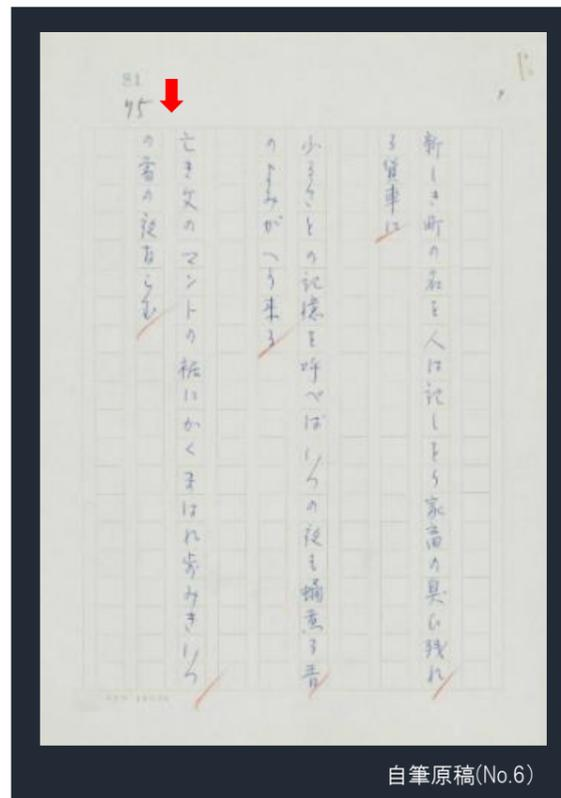 81
75
新しき町の名を人は記しをり家畜の臭ひ残れ
る貨車に
ふるさとの記憶を呼べばいつの夜も蛹煮る音
のよみがへり来る
亡き父のマントの裾にかくまはれ歩みきいつ
の雪の夜ならむ
自筆原稿(No.6)